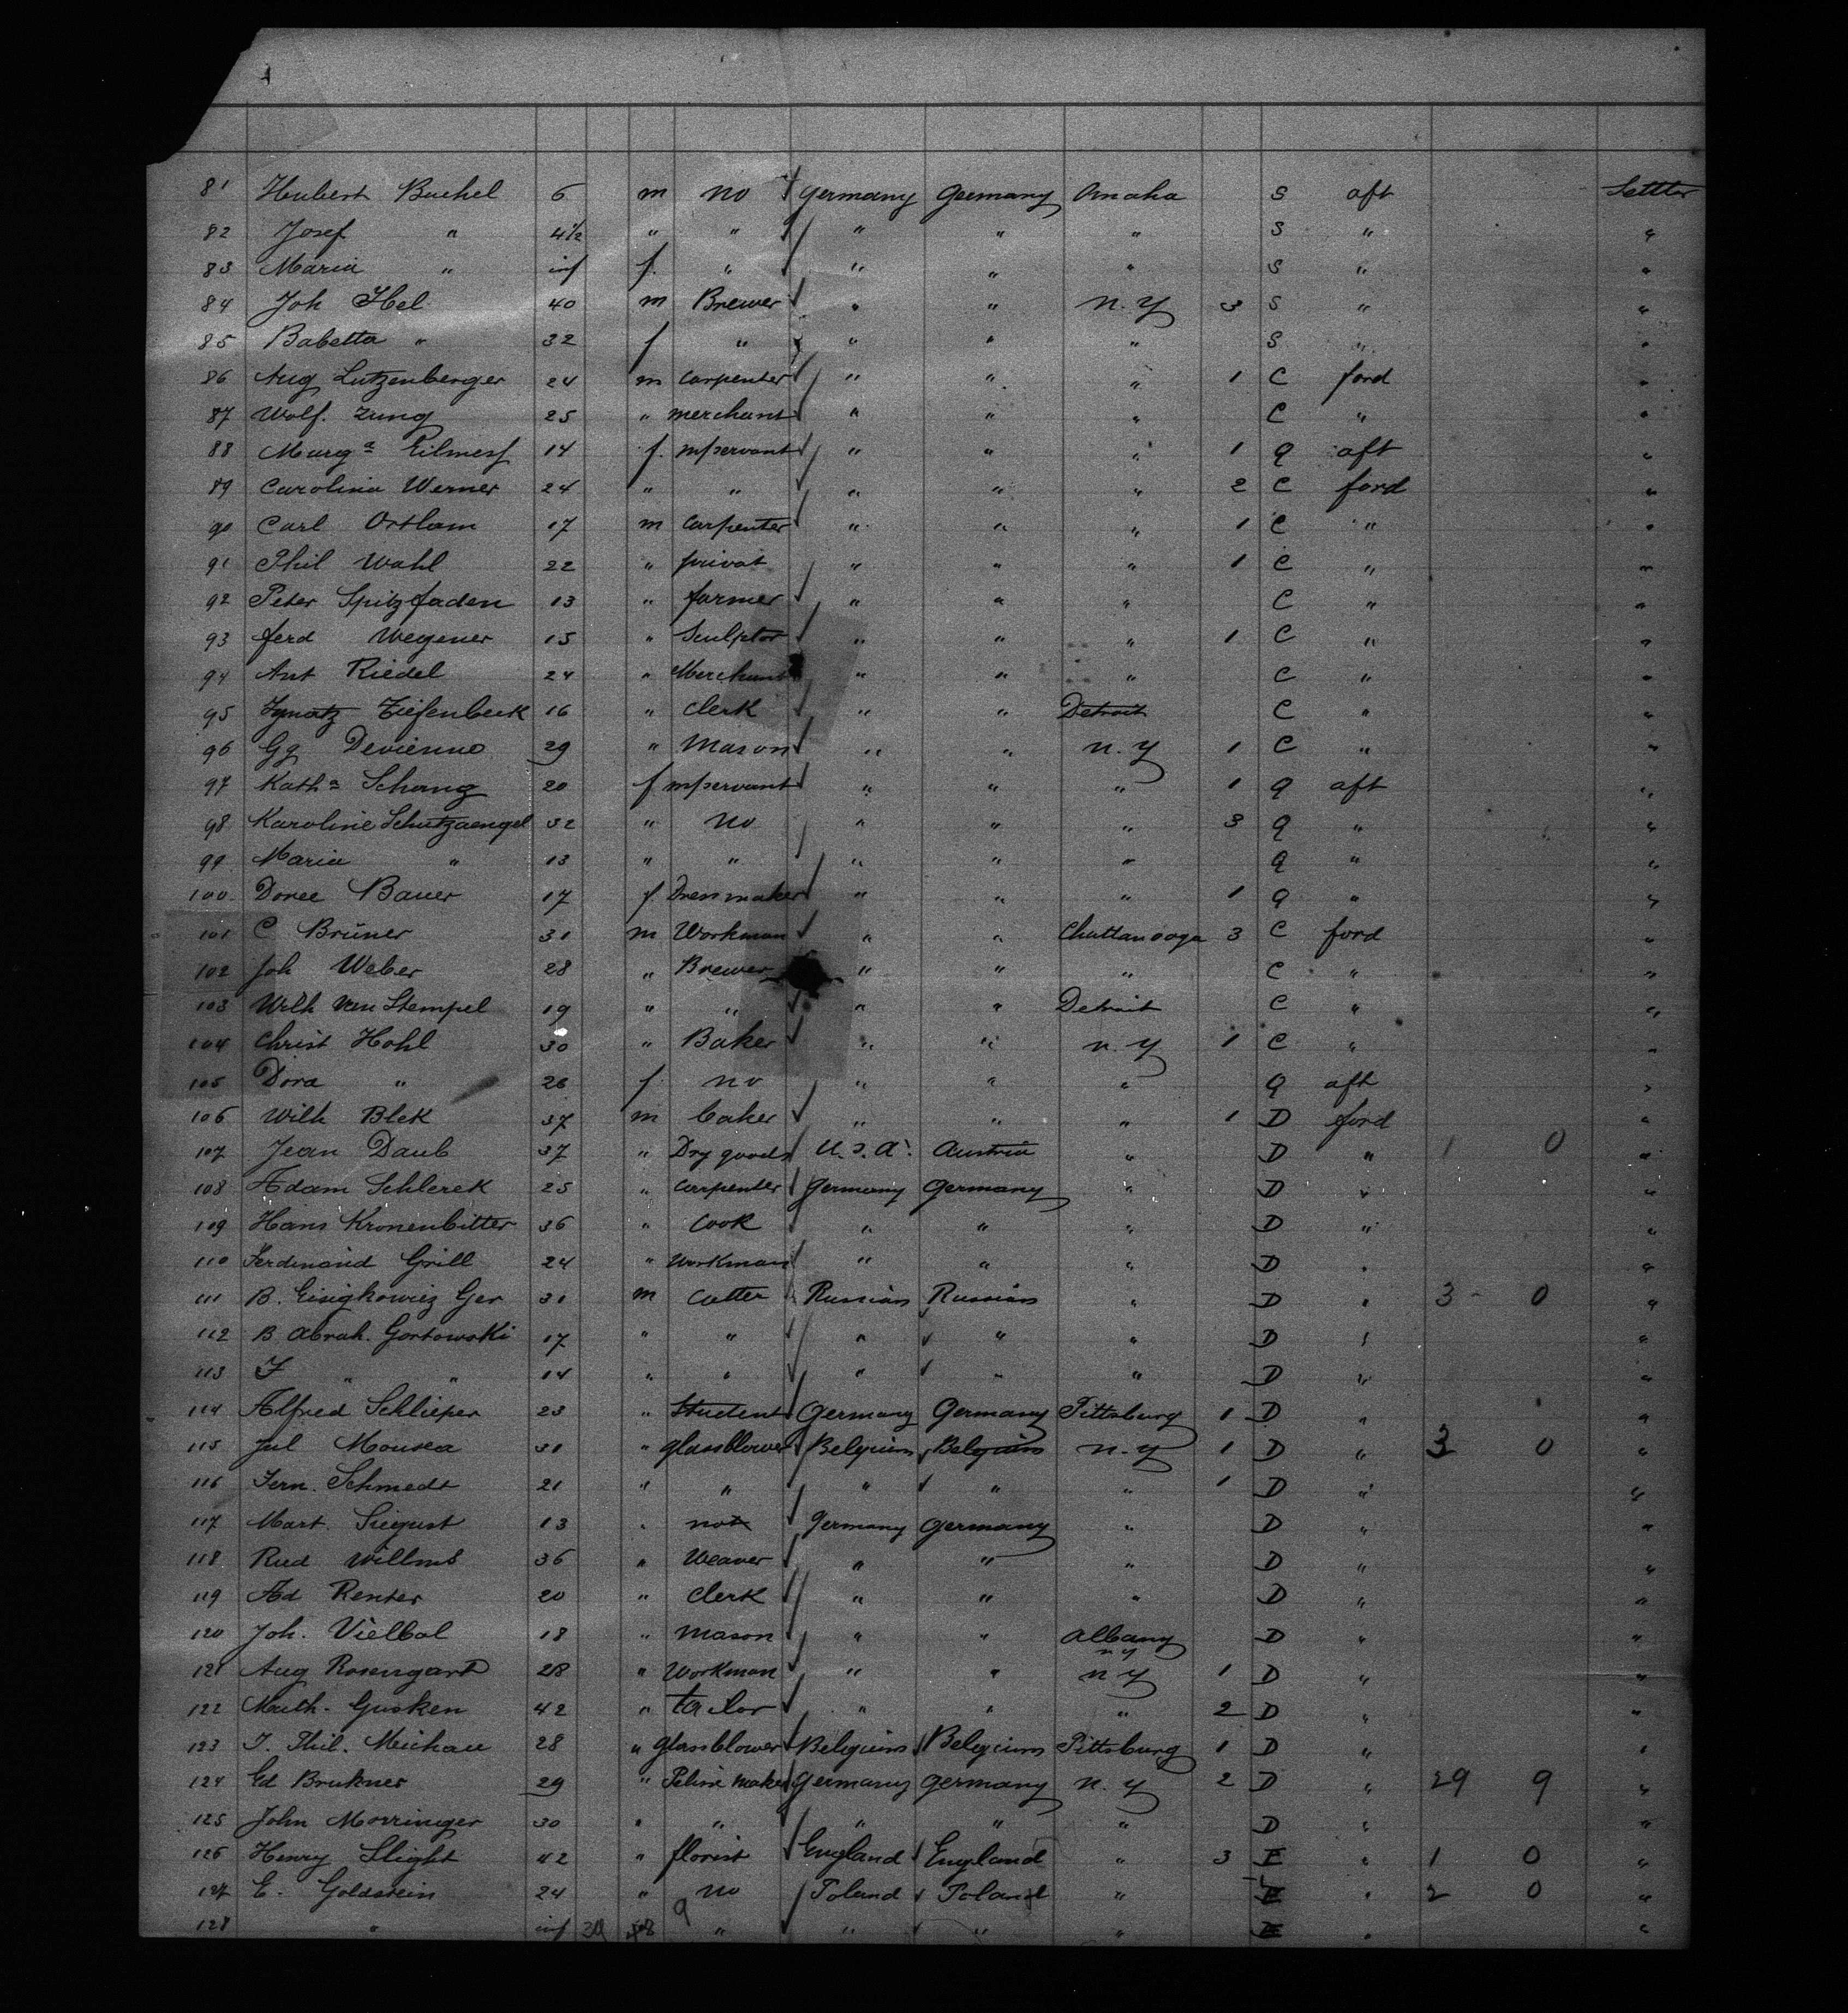 81 Hubert Buchel 6 m no Germany Germany Omaha S aft Settler
82 Josef " 4½ " " " " " S " "
83 Maria " inf f. " " " " S " "
84 Joh 40 m Brewer " " N. Y 3 S " "
85 Babetta " 32 f " " " " S " "
86 Aug Lutzenberger 24 m carpenter " " " 1 C ford "
87 Wolf. Zung 25 " merchant " " " C " "
88 Marg a 14 f. mservant " " " 1 Q aft "
89 Carolina Werner 24 " " " " " 2 C ford "
90 Carl Ortlam 17 m carpenter " " " 1 C " "
91 Phil Wahl 22 " privat " " " 1 C " "
92 Peter Spitzfaden 13 " farmer " " " C " "
93 ferd Wegener 15 " Sculptor " " " 1 C " "
94 Ant Riedel 24 " Merchant " " " C " "
95 Ignatz Tiefenbeck 16 " Clerk " " Detroit C " "
96 Gg Devienne 29 " Mason " " n. y 1 C " "
97 Kath a Schang 20 f mservant " " " 1 Q aft "
98 Karoline Schutzaengel 32 " no " " " 3 Q " "
99 Maria " 13 " " " " " Q " "
100 Doree Bauer 17 f Dressmaker " " " 1 Q " "
101 C Brüner 31 m Workman " " Chattanooga 3 C ford "
102 Joh Weber 28 " Brewer " " " C " "
103 Wilh Van Stempel 19 " " " " Detroit C " "
104 Christ Hohl 30 " Baker " " n. y 1 C " "
105 Dora " 26 f. no " " " Q aft "
106 Wilh Blek 37 m baker " " " 1 D ford "
107 Jean Daub 37 " Dry goods U. S. A. Austria " D " 1 0 "
108 Adam Schlerek 25 " carpenter Germany Germany " D " "
109 Hans Kronenbitter 36 " cook " " " D " "
110 Ferdinand Grill 24 " workman " " " D " "
111 B. Eisigkowiez Ger 31 m cutter Russian Russian " D " 3 0 "
112 B Abrah. Gortowski 17 " " " " " D " "
113 " " 14 " " " " " D " "
114 Alfred Schlieper 23 " Student Germany Germany Pittsburg 1 D " "
115 Jul Mousea 31 " glassblower Belgium Belgium n. y 1 D " 3 0 "
116 Fern. Schmedt 21 " " " " " 1 D " "
117 Mart. Siegust 13 " not Germany Germany " D " "
118 Rud Willms 36 " Weaver " " " D " "
119 Ad Renter 20 " Clerk " " " D " "
120 Joh. Vielbal 18 " mason " " Albany n y D " "
121 Aug Rosengart 28 " Workman " " n y 1 D " "
122 Math. Gusken 42 " tailor " " " 2 D " "
123 J. Phil. Michau 28 " glassblower Belgium Belgium Pittsburg 1 D " "
124 Ed Brukner 29 " maker Germany Germany n. y 2 D " 29 9 "
125 John Morringer 30 " " " " " D " "
126 Henry Slight 42 " florist England England " 3 E " 1 0 "
127 E. Goldstein 24 " no Poland Poland " E " 2 0 "
128 " inf " " " " E " "